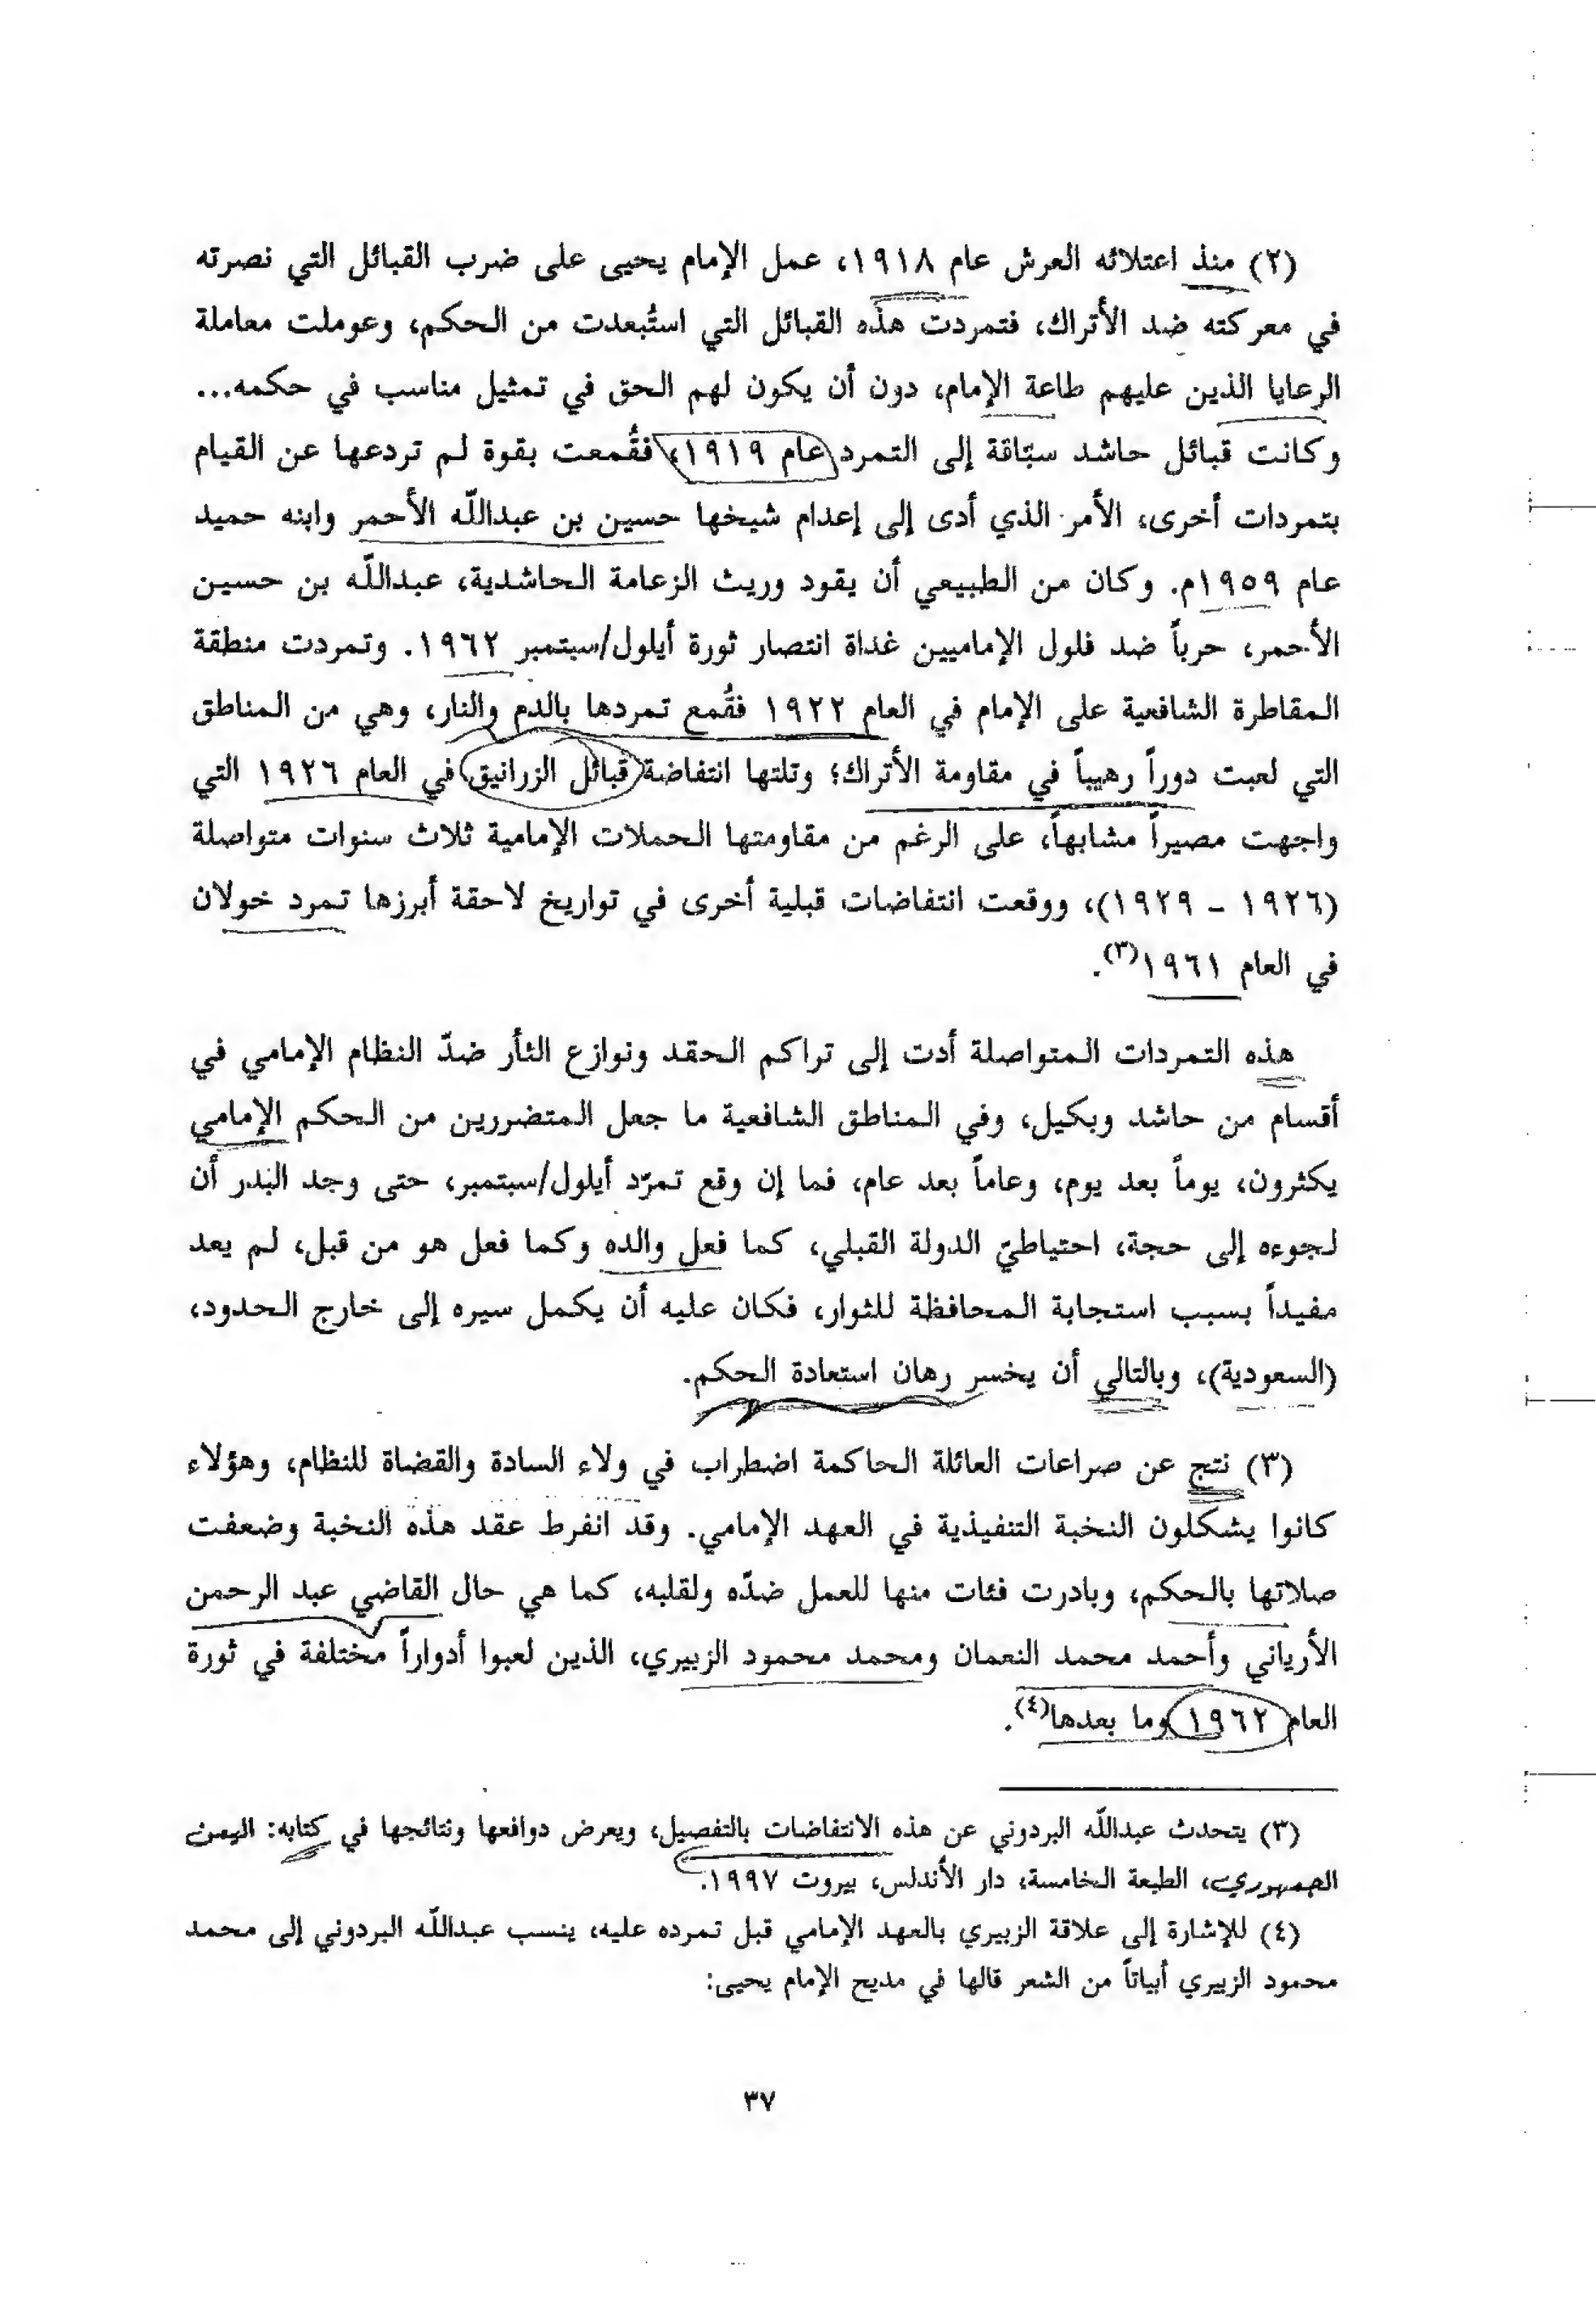 (٢) منذ اعتلائه العرش عام ١٩١٨، عمل الإمام يحيى على ضرب القبائل التي نصرته
في معركته ضد الأتراك، فتمردت هذه القبائل التي استُبعدت من الحكم، وعوملت معاملة
الرعايا الذين عليهم طاعة الإمام، دون أن يكون لهم الحق في تمثيل مناسب في حكمه...
وكانت قبائل حاشد سبّاقة إلى التمرد عام ١٩١٩، فقُمعت بقوة لم تردعها عن القيام
بتمردات أخرى، الأمر الذي أدى إلى إعدام شيخها حسين بن عبداللّه الأحمر وابنه حميد
عام ١٩٥٩م. وكان من الطبيعي أن يقود وريث الزعامة الحاشدية، عبداللّه بن حسين
الأحمر، حرباً ضد فلول الإماميين غداة انتصار ثورة أيلول/سبتمبر ١٩٦٢. وتمردت منطقة
المقاطرة الشافعية على الإمام في العام ١٩٢٢ فقُمع تمردها بالدم والنار، وهي من المناطق
التي لعبت دوراً رهيباً في مقاومة الأتراك؛ وتلتها انتفاضة قبائل الزرانيق في العام ١٩٢٦ التي
واجهت مصيراً مشابهاً، على الرغم من مقاومتها الحملات الإمامية ثلاث سنوات متواصلة
(١٩٢٦ - ١٩٢٩)، ووقعت انتفاضات قبلية أخرى في تواريخ لاحقة أبرزها تمرد خولان
في العام ١٩٦١(٣).
هذه التمردات المتواصلة أدت إلى تراكم الحقد ونوازع الثأر ضدّ النظام الإمامي في
أقسام من حاشد وبكيل، وفي المناطق الشافعية ما جعل المتضررين من الحكم الإمامي
يكثرون، يوماً بعد يوم، وعاماً بعد عام، فما إن وقع تمرّد أيلول/سبتمبر، حتى وجد البدر أن
لجوءه إلى حجة، احتياطيّ الدولة القبلي، كما فعل والده وكما فعل هو من قبل، لم يعد
مفيداً بسبب استجابة المحافظة للثوار، فكان عليه أن يكمل سيره إلى خارج الحدود،
(السعودية)، وبالتالي أن يخسر رهان استعادة الحكم.
(٣) نتج عن صراعات العائلة الحاكمة اضطراب في ولاء السادة والقضاة للنظام، وهؤلاء
كانوا يشكلون النخبة التنفيذية في العهد الإمامي. وقد انفرط عقد هذه النخبة وضعفت
صلاتها بالحكم، وبادرت فئات منها للعمل ضدّه ولقلبه، كما هي حال القاضي عبد الرحمن
الأرياني وأحمد محمد النعمان ومحمد محمود الزبيري، الذين لعبوا أدواراً مختلفة في ثورة
العام ١٩٦٢ وما بعدها(٤).
(٣) يتحدث عبداللّه البردوني عن هذه الانتفاضات بالتفصيل، ويعرض دوافعها ونتائجها في كتابه: اليمن
الجمهوري، الطبعة الخامسة، دار الأندلس، بيروت ١٩٩٧.
(٤) للإشارة إلى علاقة الزبيري بالعهد الإمامي قبل تمرده عليه، ينسب عبداللّه البردوني إلى محمد
محمود الزبيري أبياتاً من الشعر قالها في مديح الإمام يحيى:
٣٧